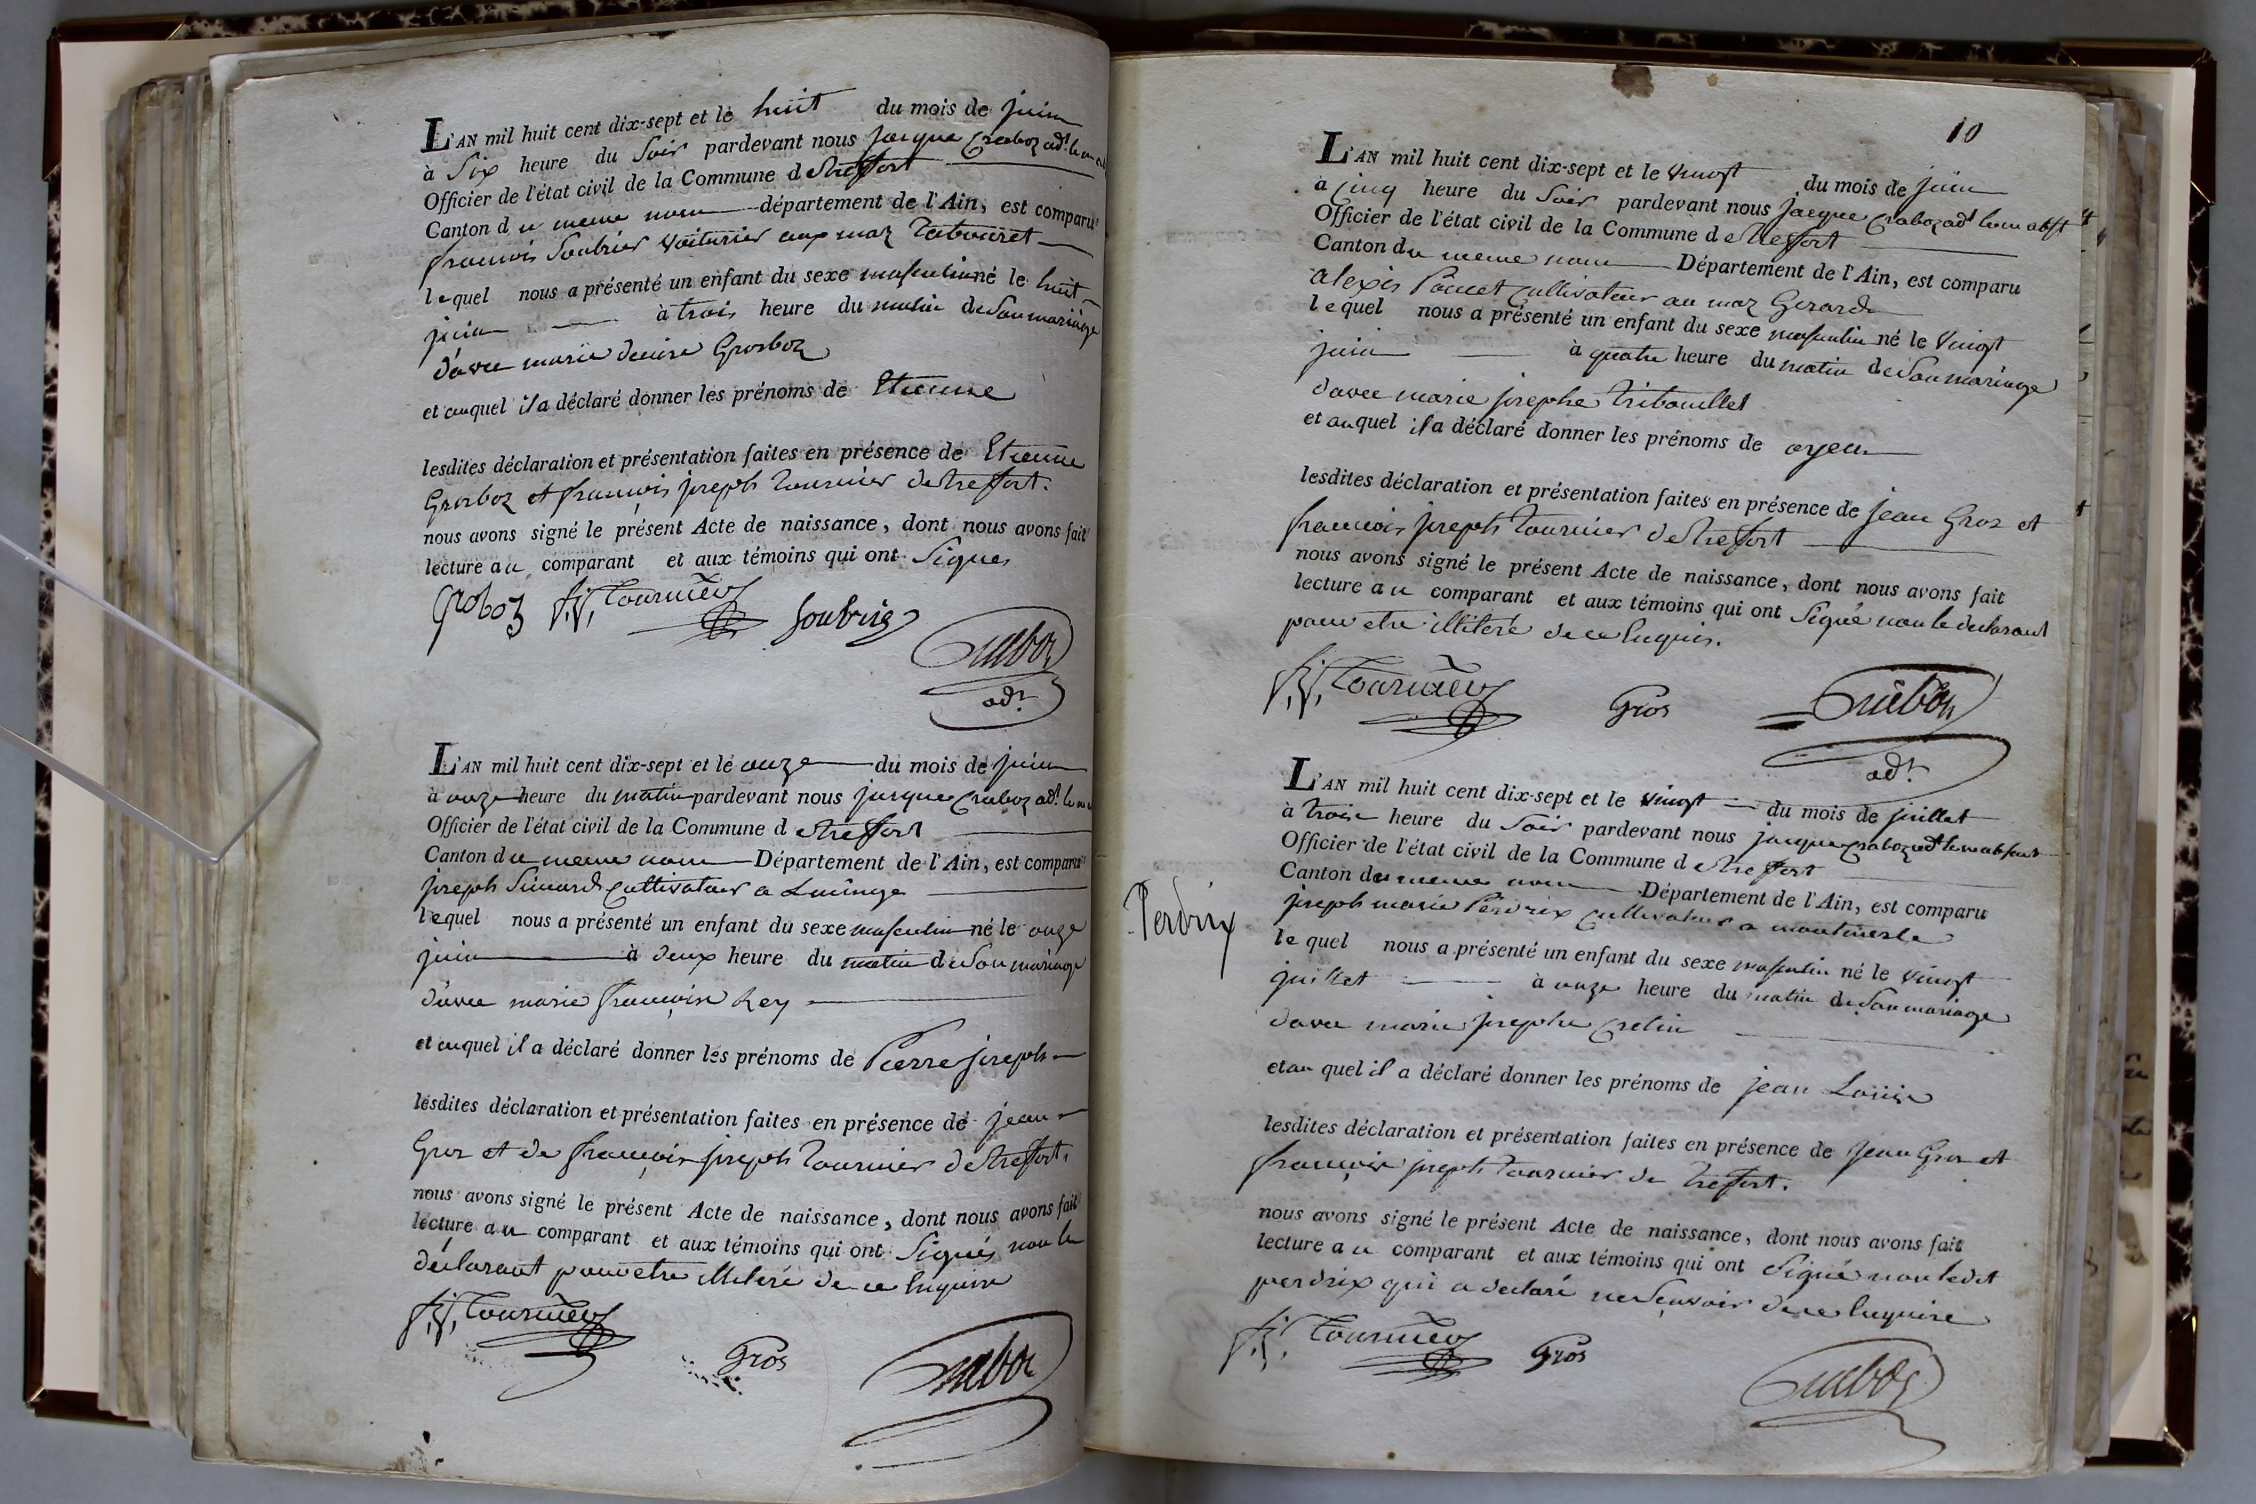 L'AN mil huit cent dix-sept et le huit du mois de juin
à Six heure du Soir pardevant nous jacque Craboz adt le m
Officier de l'état civil de la Commune de treffort
Canton du meme nom département de l'Ain, est comparu
francois Soubrier Voiturier aux maz Tabouret
lequel nous a présenté un enfant du sexe masculin né le huit
juin à trois heure du matin de Son mariage
d'avec marie denise Grosboz
et auquel il a déclaré donner les prénoms de Etienne
lesdites déclaration et présentation faites en présence de Etienne
Grosboz et françois joseph Tournier de treffort.
nous avons signé le présent Acte de naissance, dont nous avons fait
lecture au comparant et aux témoins qui ont Signes
Groboz f.j. Tournier Soubrie
Craboz
adt
L'AN mil huit cent dix-sept et le onze du mois de juin
à onze heure du matin pardevant nous jacque Craboz adt le m
Officier de l'état civil de la Commune de treffort
Canton du meme nom Département de l'Ain, est comparu
joseph Cultivateur a
lequel nous a présenté un enfant du sexe masculin né le onze
juin à deux heure du matin de Son mariage
d'avec marie françoise Rey
et auquel il a déclaré donner les prénoms de Pierre joseph
lesdites déclaration et présentation faites en présence de jean
Gros et de françois joseph Tournier de treffort.
nous avons signé le présent Acte de naissance, dont nous avons fait
lecture au comparant et aux témoins qui ont Signés non le
déclarant pour etre illiteré de ce Enquire
f.j. Tournier
Gros
Craboz
10
L'AN mil huit cent dix-sept et le vingt du mois de juin
à cinq heure du Soir pardevant nous jacque Craboz adt le m abst
Officier de l'état civil de la Commune de treffort
Canton du meme nom Département de l'Ain, est comparu
alexis Poncet Cultivateur au maz Gerard
lequel nous a présenté un enfant du sexe masculin né le vingt
juin à quatre heure du matin de Son mariage
d'avec marie josephe Tribouillet
et auquel il a déclaré donner les prénoms de
lesdites déclaration et présentation faites en présence de jean Gros et
francois joseph Tournier de treffort
nous avons signé le présent Acte de naissance, dont nous avons fait
lecture au comparant et aux témoins qui ont Signé non le declarant
pour etre illiteré de ce Enquis.
f.j. Tournier Gros Craboz
adt
L'AN mil huit cent dix-sept et le vingt du mois de juillet
à trois heure du Soir pardevant nous jacque Craboz adt le m absent
Officier de l'état civil de la Commune de treffort
Canton du meme nom Département de l'Ain, est comparu
joseph marie Perdrix Cultivateur a montmerle
Perdrix
lequel nous a présenté un enfant du sexe masculin né le vingt
juillet à onze heure du matin de Son mariage
d'avec marie josephe Cretin
et au quel il a déclaré donner les prénoms de jean Louis
lesdites déclaration et présentation faites en présence de jean Gros et
françois joseph Tournier de treffort.
nous avons signé le présent Acte de naissance, dont nous avons fait
lecture au comparant et aux témoins qui ont Signé non ledit
perdrix qui a declaré ne Sçavoir de ce Enquire
f.j. Tournier Gros
Craboz